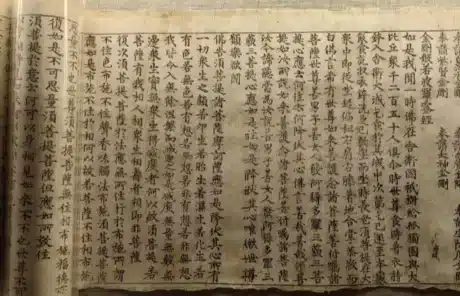 金剛般若波羅蜜經
如是我聞一時佛在舍衛國祇樹給孤獨園與大
比丘衆千二百五十人俱尒時世尊食時著衣持
鉢入舍衛大城乞食於其城中次第乞已還至本處
飯食訖收衣鉢洗足已敷座而坐時長老須菩提在大
衆中即從座起偏袒右肩右膝著地合掌恭敬而
白佛言希有世尊如來善護念諸菩薩善付囑諸
菩薩世尊善男子善女人發阿耨多羅三藐三菩
提心應云何住云何降伏其心佛言善哉善哉須菩
提如汝所說如來善護念諸菩薩善付囑諸菩薩
汝今諦聽當為汝說善男子善女人發阿耨多羅三
藐三菩提心應如是住如是降伏其心唯然世尊
願樂欲聞
佛告須菩提諸菩薩摩訶薩應如是降伏其心所有
一切衆生之類若卵生若胎生若濕生若化生若
有色若無色若有想若無想若非有想非無想
我皆令入無餘涅槃而滅度之如是滅度無量無數無
邊衆生實無衆生得滅度者何以故須菩提若
菩薩有我相人相衆生相壽者相即非菩薩
復次須菩提菩薩於法應無所住行於布施所謂
不住色布施不住聲香味觸法布施須菩提菩薩
應如是布施不住於相何以故若菩薩不住相布施
復如是不可思量須菩提菩薩但應如所教住
須菩提於意云何可以身相見如來不不也世尊不可